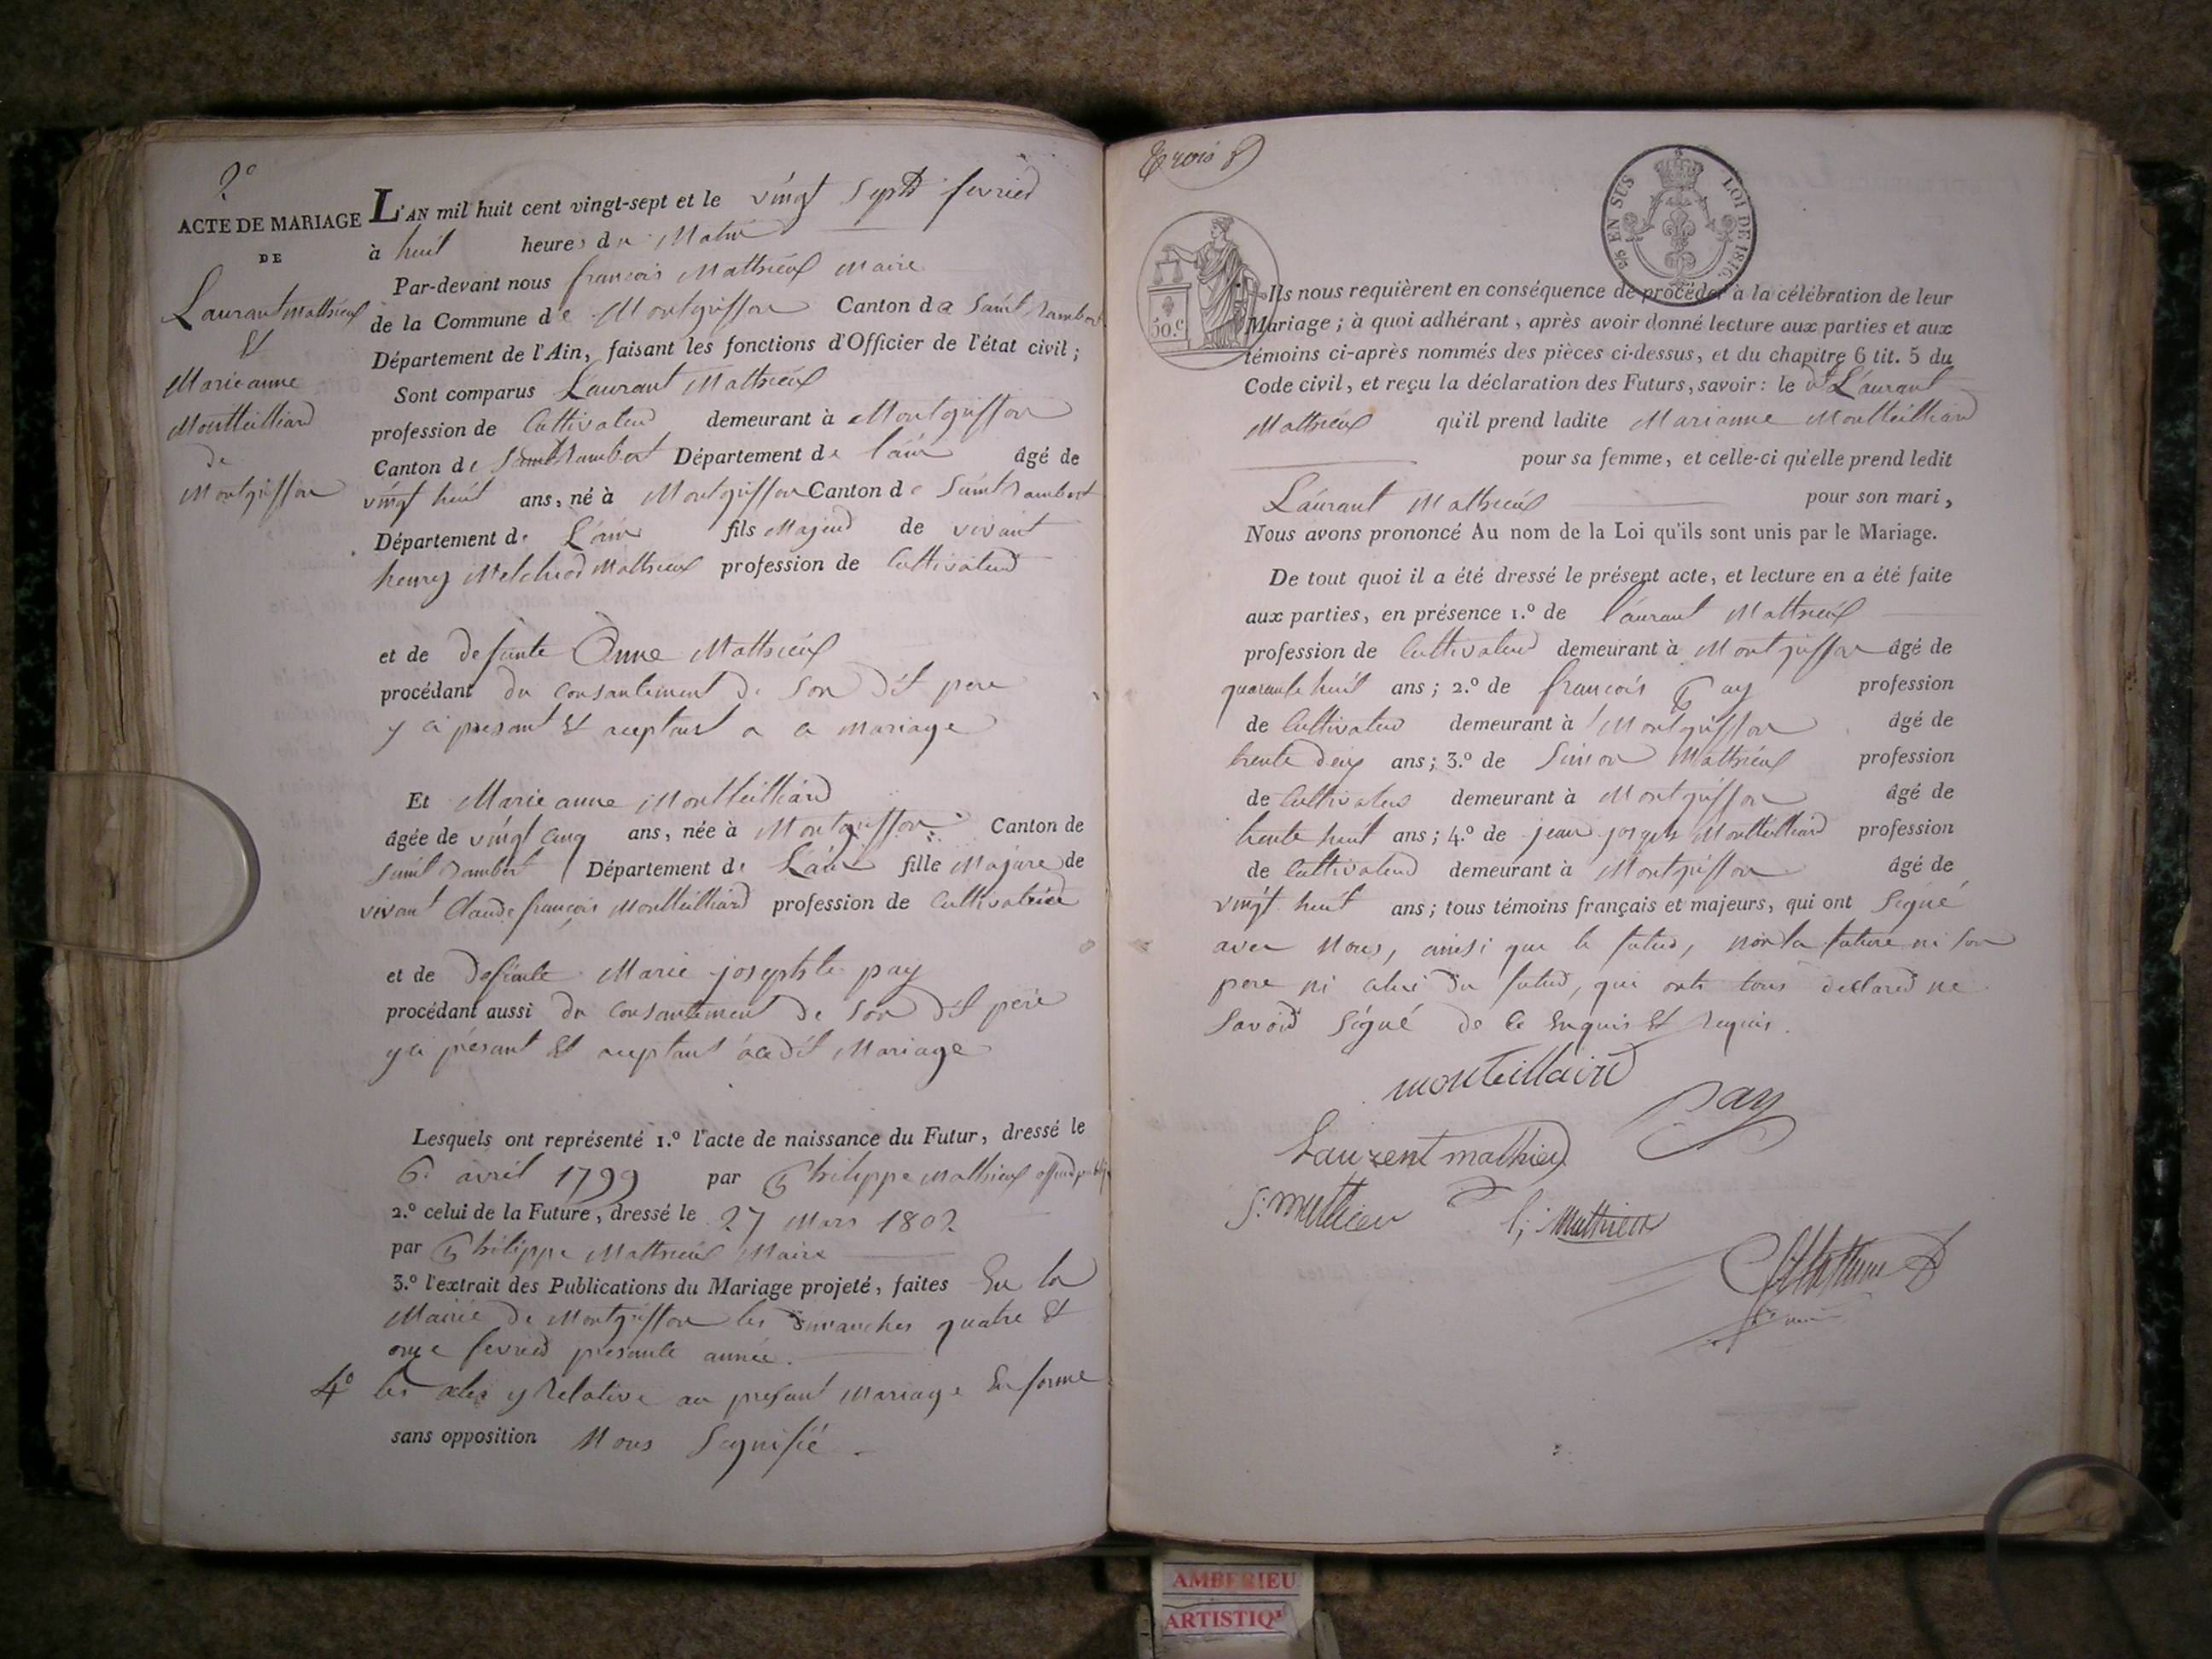 2º
ACTE DE MARIAGE
DE
Laurant Mathieux
Et
Marie anne
Montteilliard
de
Montgriffon
L'AN mil huit cent vingt-sept et le vingt Sept fevried
à huit heures du Matin
Par-devant nous françois Mathieux Maire
de la Commune de Montgriffon Canton de Saint Rambert
Département de l'Ain, faisant les fonctions d'Officier de l'état civil;
Sont comparus Laurant Mathieux
profession de Cultivateud demeurant à Montgriffon
Canton de Saint Rambert Département de l'ain âgé de
vingt huit ans, né à Montgriffon Canton de Saint Rambert
Département de L'ain fils Majeud de vivant
henry Melchiod Mathieux profession de Cultivateud
et de defunte Anne Mathieux
procédant du Consantement de Son dit pere
y ci presant Et aceptant a ce mariage
Et Marie anne Montteilliard
âgée de vingt Cinq ans, née à Montgriffon Canton de
Saint Rambert Département de L'ain fille Majure de
vivant Claude françois Montteilliard profession de Cultivatrice
et de Defunte Marie josephte pay
procédant aussi du Consantement de Son dit pere
y ci présant Et aceptant àcedit Mariage
Lesquels ont représenté 1.º l'acte de naissance du Futur, dressé le
6. avril 1799 par Philippe Mathieux
2.º celui de la Future, dressé le 27 Mars 1802
par Philippe Mathieux Maire
3.º l'extrait des Publications du Mariage projeté, faites En la
Mairie de Montgriffon les dimanches quatre Et
onze fevried presante année.
4º les actes y Relative au presant Mariage En forme
sans opposition Nous Segnifié
trois
95 EN SUS
LOI DE 1816.
50.C
Ils nous requièrent en conséquence de procéder à la célébration de leur
Mariage; à quoi adhérant, après avoir donné lecture aux parties et aux
témoins ci-après nommés des pièces ci-dessus, et du chapitre 6 tit. 5 du
Code civil, et reçu la déclaration des Futurs, savoir: le dt Laurant
Mathieux qu'il prend ladite Marianne Montteilliard
pour sa femme, et celle-ci qu'elle prend ledit
Laurant Mathieux pour son mari,
Nous avons prononcé Au nom de la Loi qu'ils sont unis par le Mariage.
De tout quoi il a été dressé le présent acte, et lecture en a été faite
aux parties, en présence 1.º de laurant Mathieux
profession de Cultivateud demeurant à Montgriffon âgé de
quarante huit ans; 2.º de françois Pay profession
de Cultivateud demeurant à Montgriffon âgé de
trente deux ans; 3.º de Simon Mathieux profession
de Cultivateud demeurant à Montgriffon âgé de
trente huit ans; 4.º de jean joseph Montteilliard profession
de Cultivateud demeurant à Montgriffon âgé de
vingt huit ans; tous témoins français et majeurs, qui ont Signé
avec Nous, ainsi que le futud, non la future ni Son
pere ni celui du futud, qui onts tous declared ne
Savoid Signé de ce Enquis Et Requis.
monteillaird
pay
Laurent mathieu
S. mathieu
l; Mathieu
AMBERIEU
ARTISTIQ